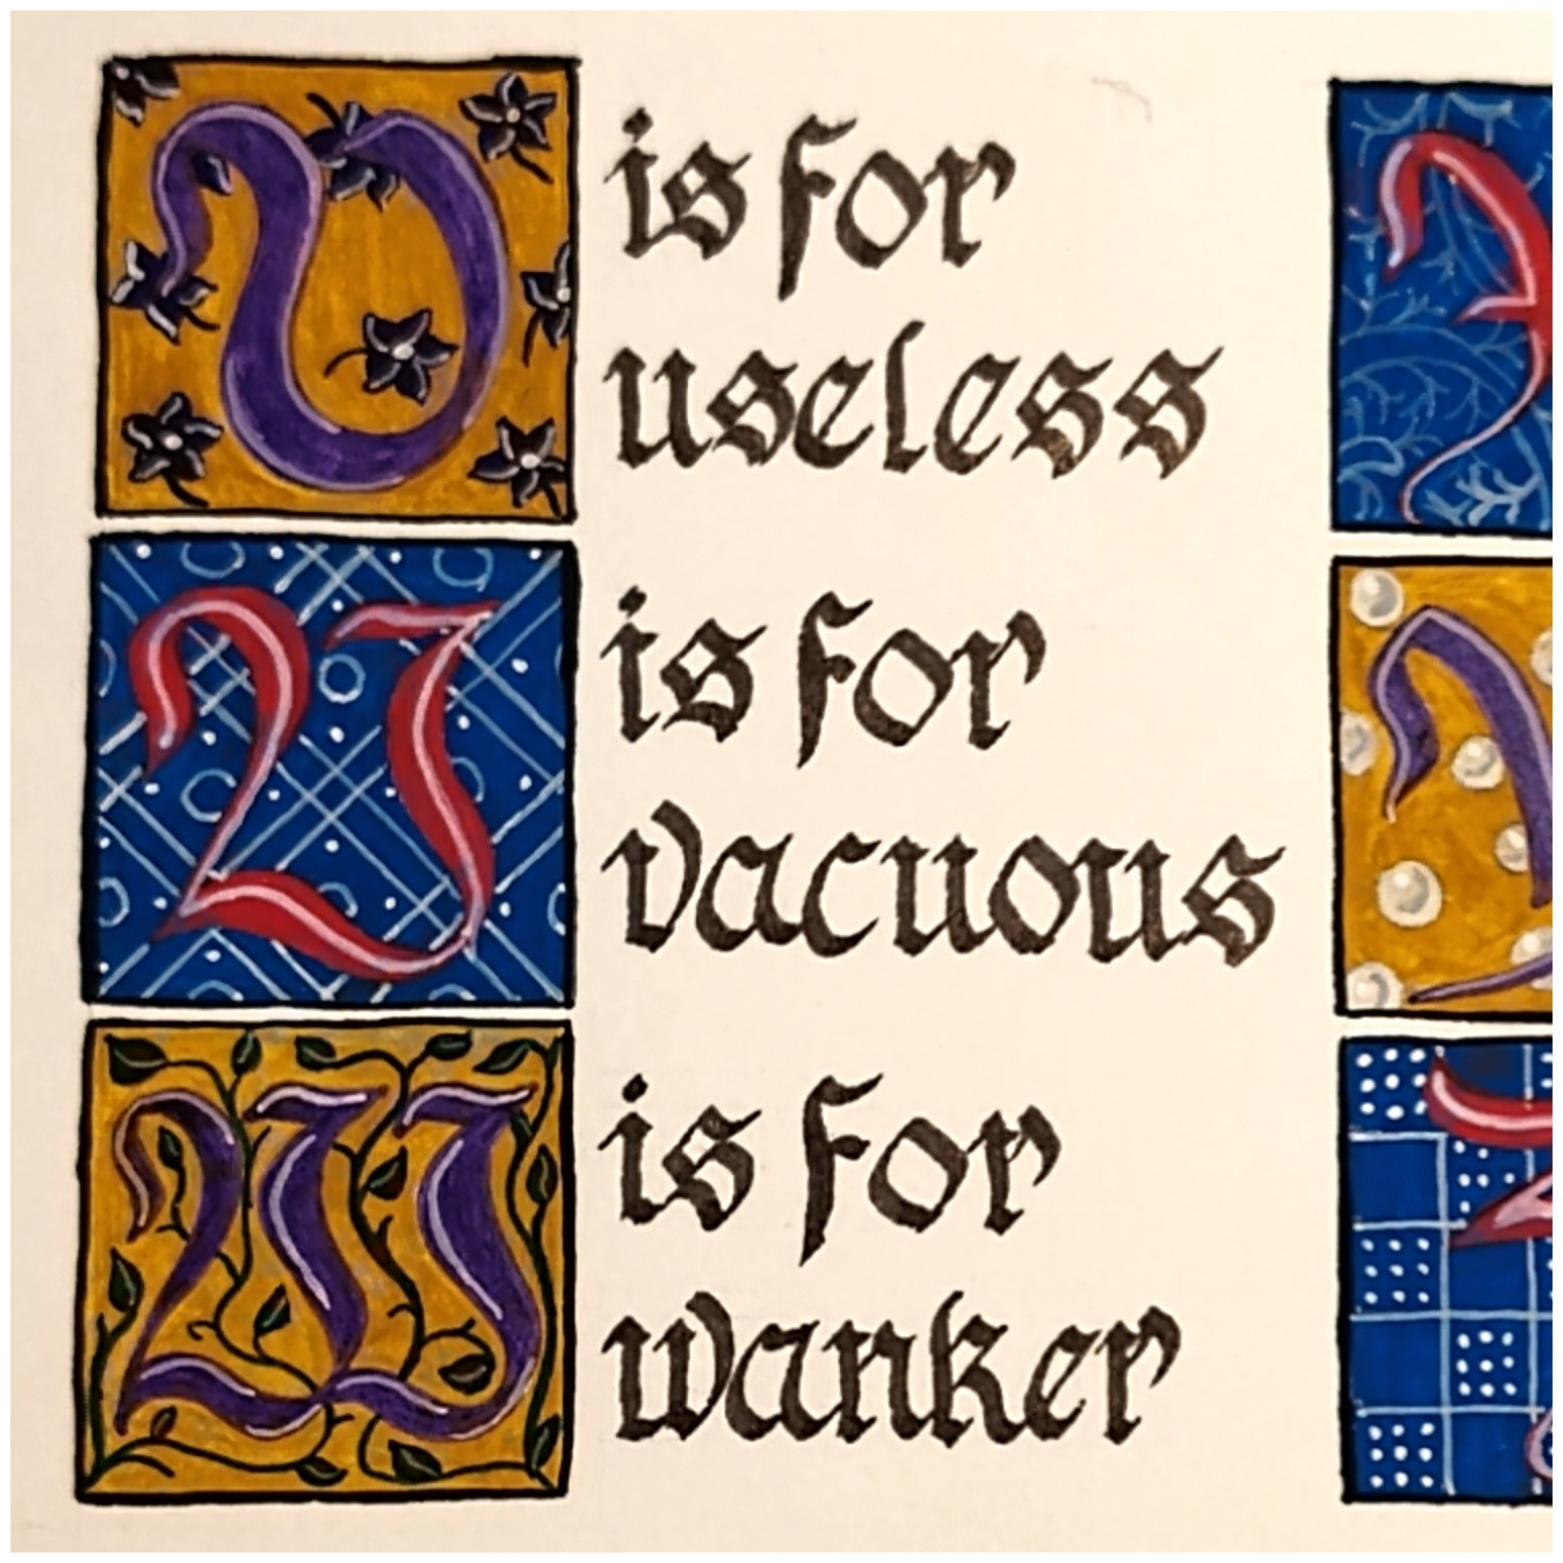 U is for
useless
V is for
vacuous
W is for
wanker